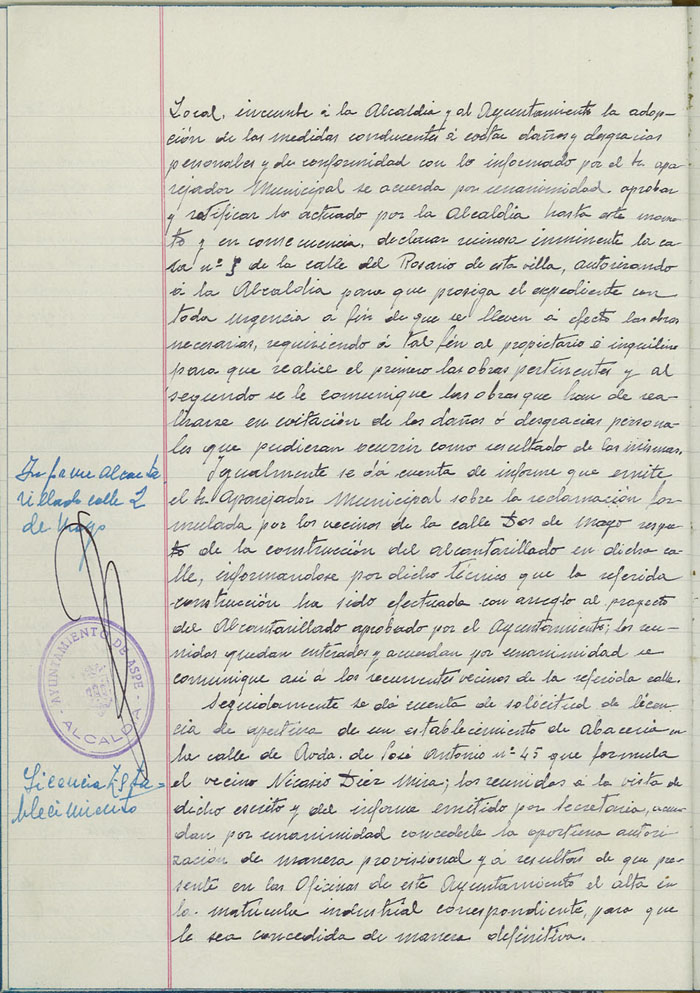 Local, incumbe á la Alcaldia y al Ayuntamiento la adop-
ción de las medidas conducentes á evitar daños y desgracias
personales y de conformidad con lo informado por el Sr. apa-
rejador Municipal se acuerda por unanimidad aprobar
y ratificar lo actuado por la Alcaldia hasta este momen-
to y en consecuencia, declarar ruinosa inminente la ca-
sa nº de la calle del Rosario de esta villa, autorizando
á la Alcaldia para que prosiga el expediente con
toda urgencia á fin de que se lleven á efecto las obras
necesarias, requiriendo á tal fin al propietario é inquilino
para que realice el primero las obras pertinentes y al
segundo se le comunique las obras que han de rea-
lizarse en evitación de los daños ó desgracias persona-
les que pudieran ocurrir como resultado de las mismas.
Informe Alcanta
rillado calle 2
de Mayo
Igualmente se dá cuenta de informe que emite
el Sr. Aparejador Municipal sobre la reclamación for-
mulada por los vecinos de la calle Dos de Mayo respec-
to de la construcción del alcantarillado en dicha ca-
lle, informandose por dicho técnico que la referida
construcción ha sido efectuada con arreglo al proyecto
del Alcantarillado aprobado por el Ayuntamiento; los reu-
nidos quedan enterados y acuerdan por unanimidad se
comunique asi á los recurrentes vecinos de la referida calle.
AYUNTAMIENTO DE ASPE
ALCALDIA
Licencia Esta-
blecimiento
Seguidamente se dá cuenta de solicitud de licen-
cia de apertura de un establecimiento de abaceria en
la calle de Avda. de José Antonio nº 45 que formula
el vecino Nicasio Diez Mira; los reunidos á la vista de
dicho escrito y del informe emitido por Secretaria, acuer-
dan por unanimidad concederle la oportuna autori-
zación de manera provisional y á resultas de que pre-
sente en las Oficinas de este Ayuntamiento el alta en
la matricula industrial correspondiente, para que
le sea concedida de manera definitiva.